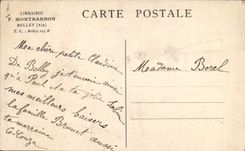 LIBRAIRIE
F. MONTBARBON
BELLEY (Ain)
CARTE POSTALE
Ma chère petite Claudine
De Belley je t'envoie ainsi
qu'à Paul et à ta
mes meilleurs baisers
la famille Brunet aussi
ta marraine
Madame Borel